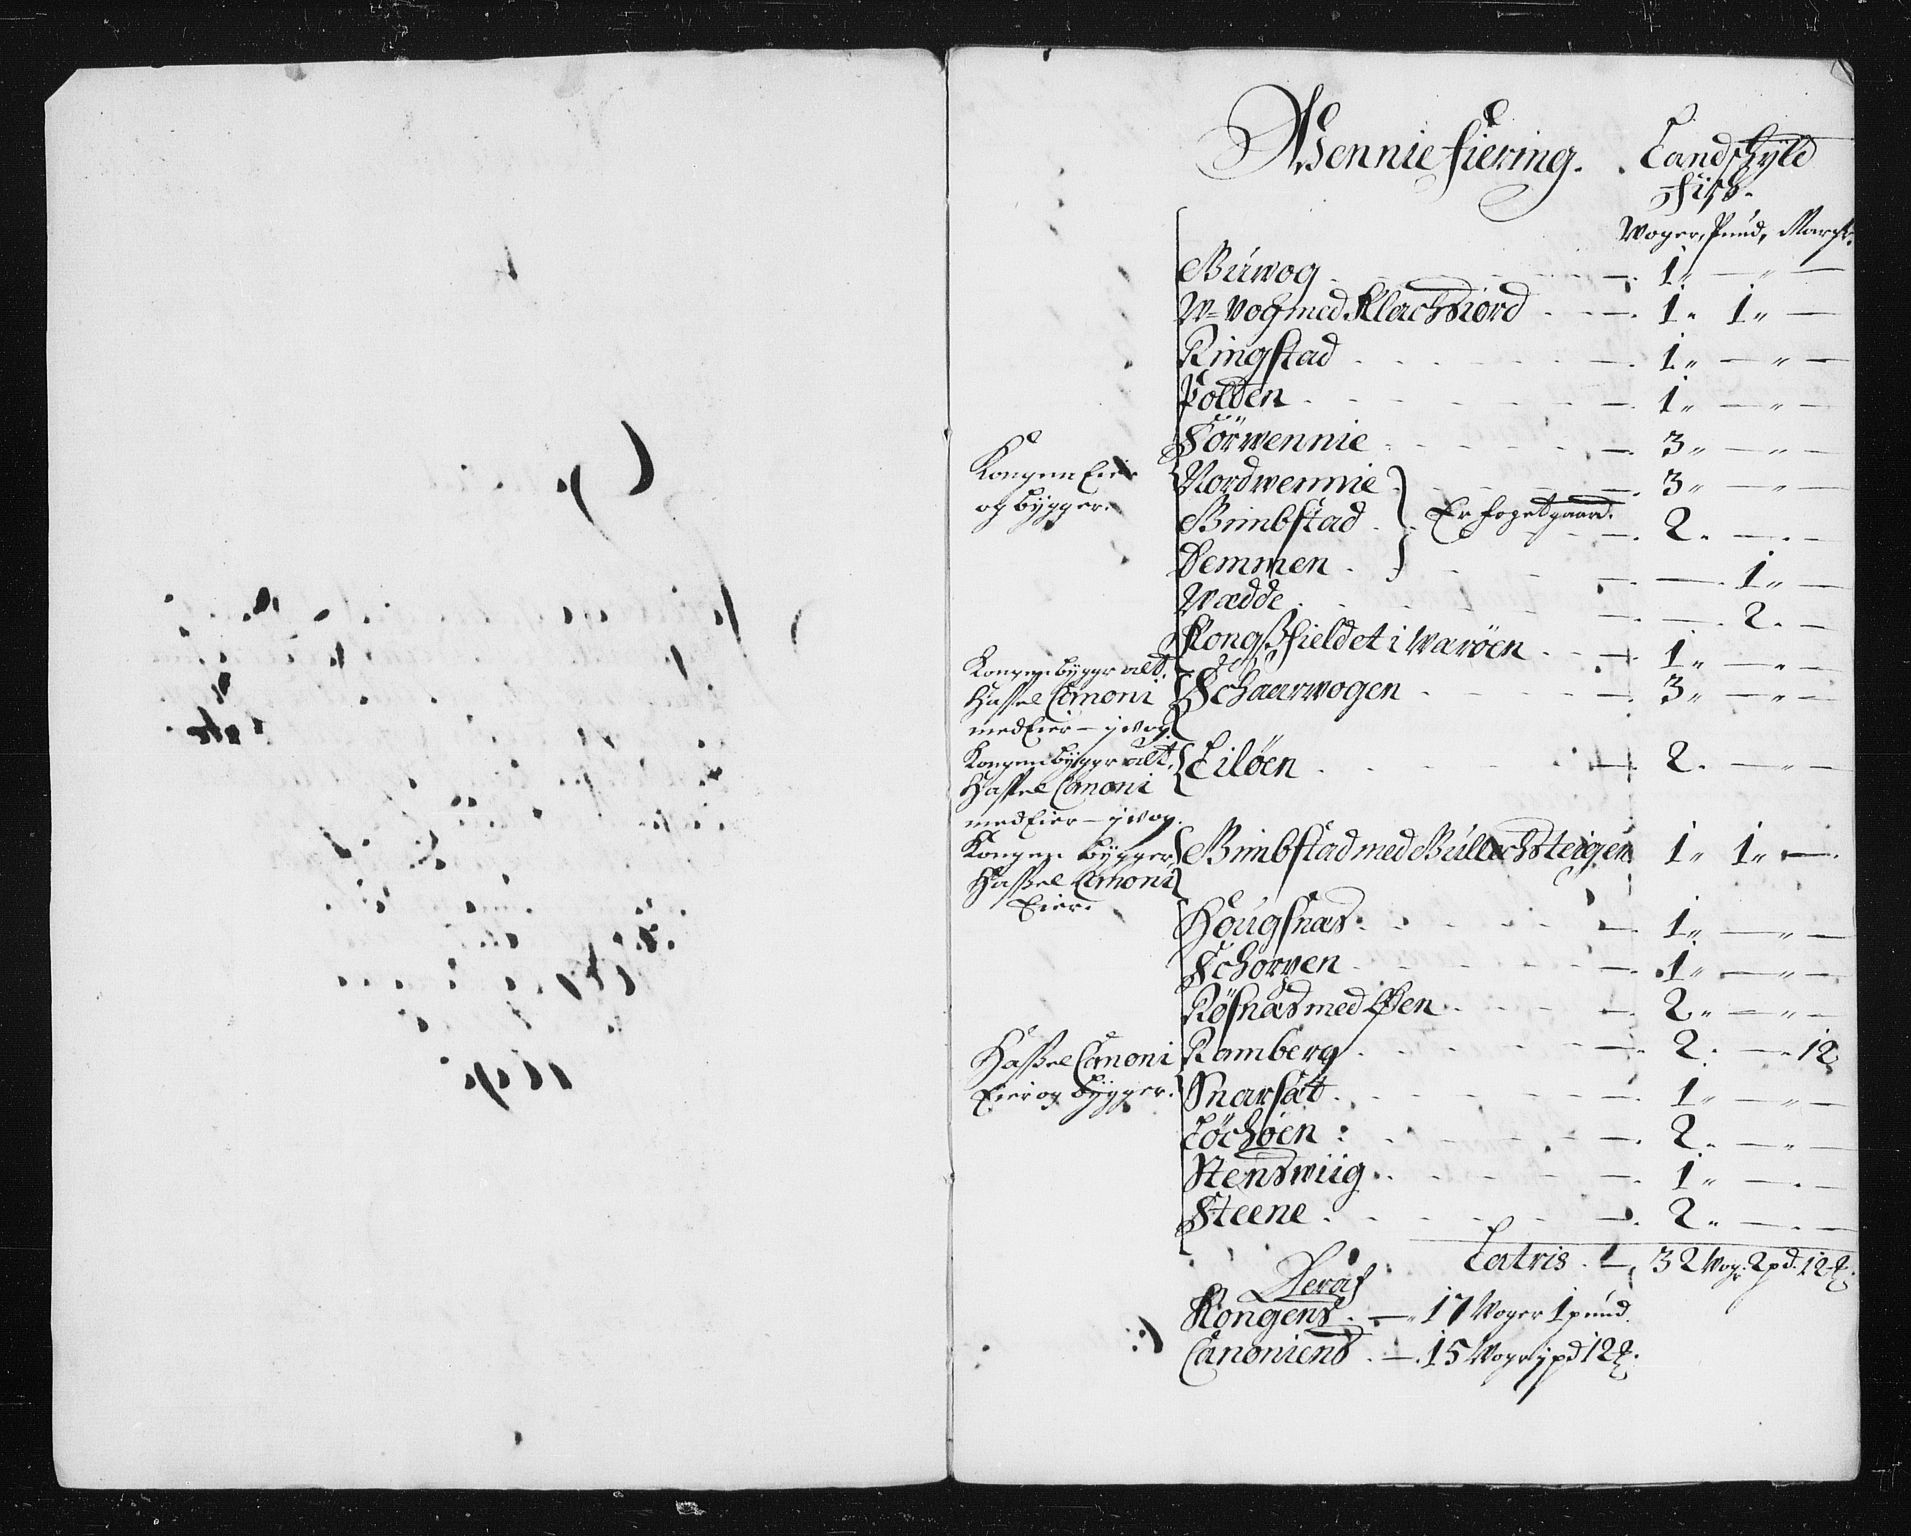 Wennie fiering. Landskyld
Fisk.
Woger, Pund, Marker.
Buwog . 1 „ — „ —
W=Vog med Klachsiord . 1 „ 1 „ —
Ringstad . 1 „ — „ —
Polden . 1 „ — „ —
Sörwennie . 3 „ — „ —
Kongen Eier
og bygger.
Nordwennie . 3 „ — „ —
Bimbstad . Er fogetgaard. 2 . — . —
Demmen . — . 1 „ —
Wædde . — . 2 . —
Kongsfieldet i Waröen . 1 „ — „ —
Kongen bygger alt.
Hassel Canoni
med Eier — j Vog.
Schaarwogen . 3 „ — „ —
Kongen bygger alt.
Hassel Canoni
med Eier — j Vog.
Lilöen . 2 . — „ —
Kongen bygger
Hassel Canoni
Eier.
Bimbstad med Bullachsteigen 1 „ 1 „ —
Hougsnæs . 1 „ — „ —
Schorpen . 1 „ — „ —
Rösnæs med Öen . 2 „ — „ —
Hassel Canoni
Eier og bygger.
Ramberg . 2 . — . 12
Snarsæt . 1 „ — „ —
Löchöen : 2 . — „ —
Stenswiig . 1 „ — . —
Steene . 2 „ — . —
Latris . — 32 Wog: 2 pd. 12 ℔.
Deraf
Kongens . — . 17 Woger 1 pund.
Canoniens . — . 15 Woge j pd 12 ℔.